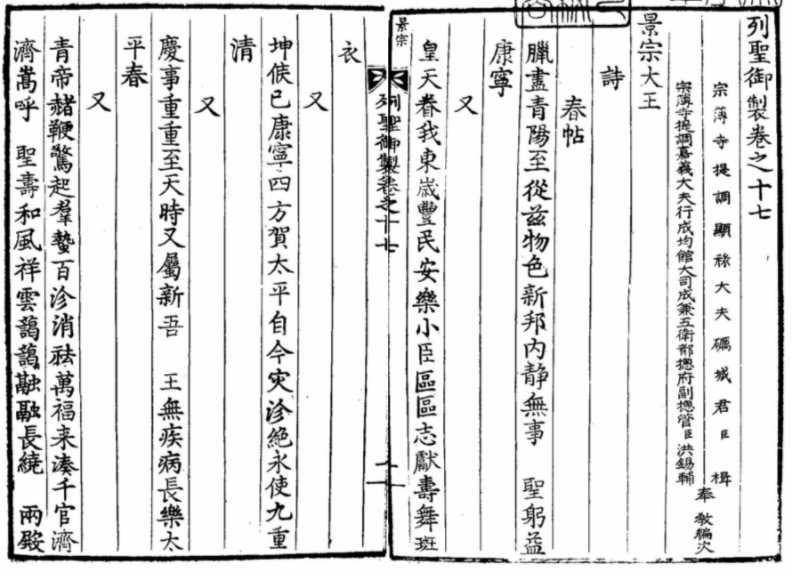 列聖御製卷之十七
宗簿寺提調顯祿大夫礪城君臣 楫
宗簿寺提調嘉義大夫行成均館大司成兼五衛都摠府副摠管臣 洪錫輔
奉 敎編次
景宗大王
詩
春帖
臘盡青陽至從玆物色新邦内静無事 聖躬益
康寧
又
皇天眷我東歲豐民安樂小臣區區志獻壽舞斑
景宗
列聖御製卷之十七
一
衣
又
坤候已康寧四方賀太平自今灾沴絶永使九重
清
又
慶事重重至天時又屬新吾 王無疾病長樂太
平春
又
青帝赭鞭驚起羣蟄百沴消祛萬福来湊千官濟
濟嵩呼 聖壽和風祥雲藹藹融融長繞 兩殿